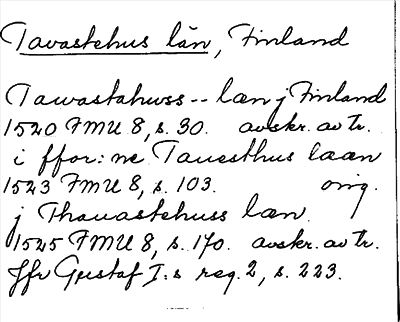 Tavastehus län, Finland
Tawastahuss -- læn j Finland
1520 FMU 8, s. 30. avskr. av tr.
i ffor: ne Tauesthus laan
1523 FMU 8, s. 103. orig.
j Thauastehuss læn.
1525 FMU 8, s. 170. avskr. av tr.
Jfr Gustaf I:s reg. 2, s. 223.